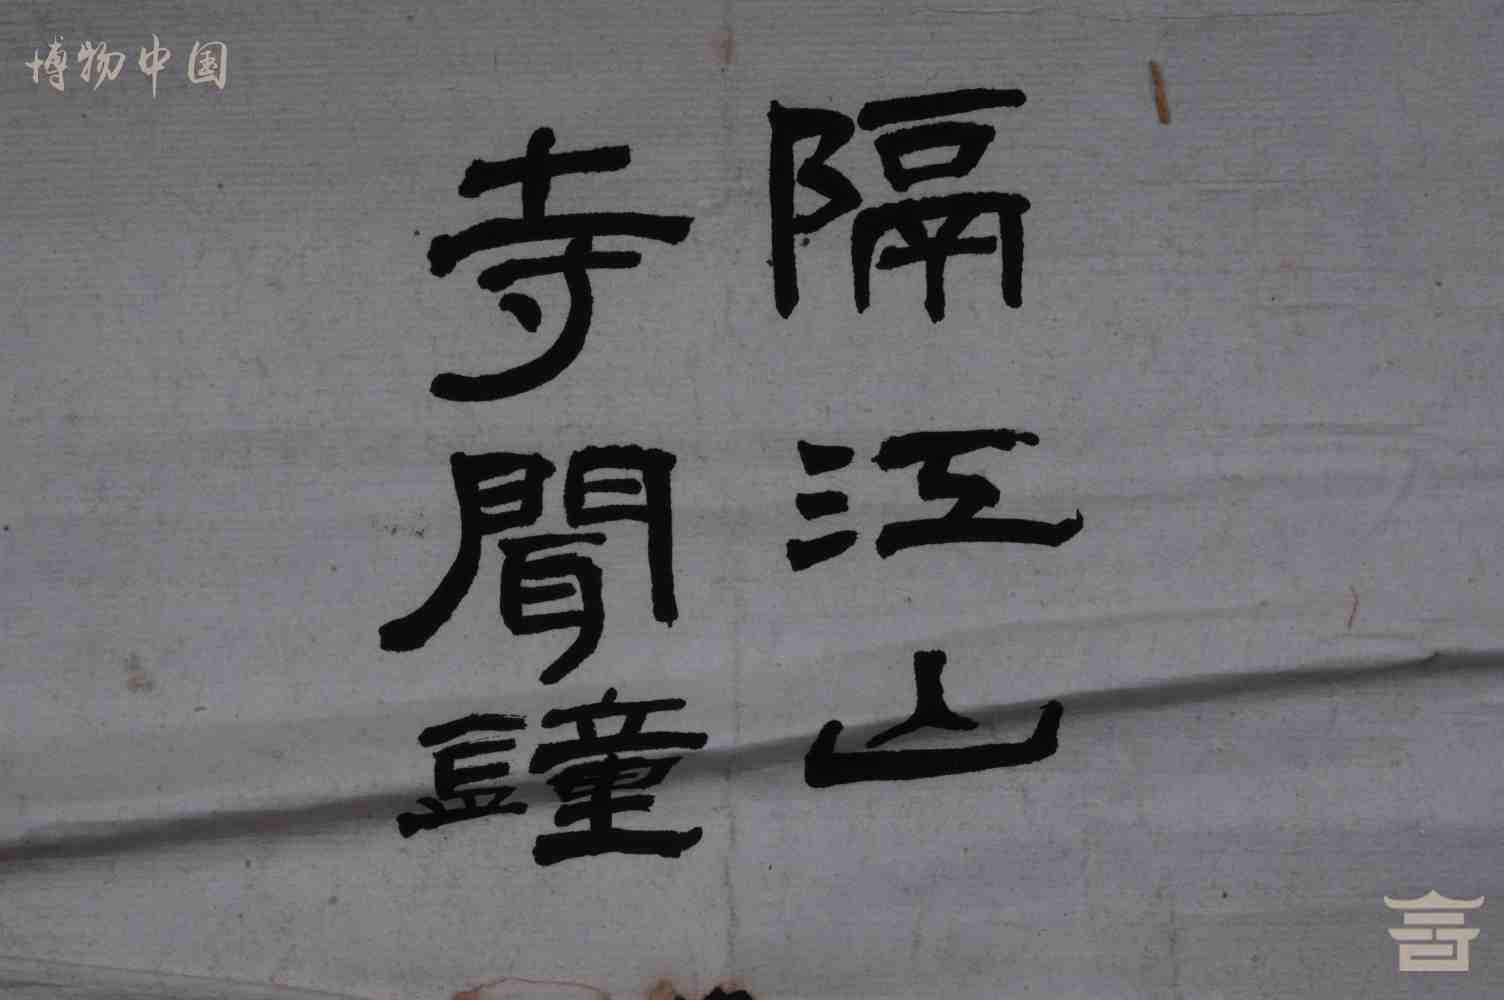 博物中国
隔江山
寺聞鐘